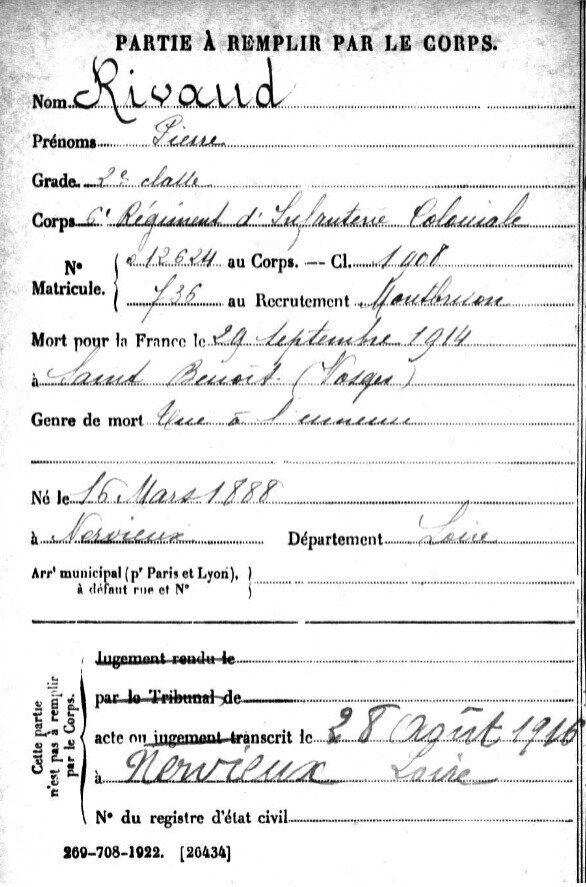 PARTIE À REMPLIR PAR LE CORPS.
Nom Rivaud
Prénoms Pierre
Grade 2e classe
Corps 6e Régiment d'Infanterie Coloniale
N° Matricule. 12624 au Corps. — Cl. 1908
736 au Recrutement Montbrison
Mort pour la France le 29 septembre 1914
à Saint Benoit (Vosges)
Genre de mort Tué à l'ennemi
Né le 16 Mars 1888
à Nervieux Département Loire
Arrt municipal (pr Paris et Lyon),
à défaut rue et N°
Cette partie n'est pas à remplir par le Corps.
Jugement rendu le
par le Tribunal de
acte ou jugement transcrit le 28 août 1916
à Nervieux Loire
N° du registre d'état civil
269-708-1922. [26434]